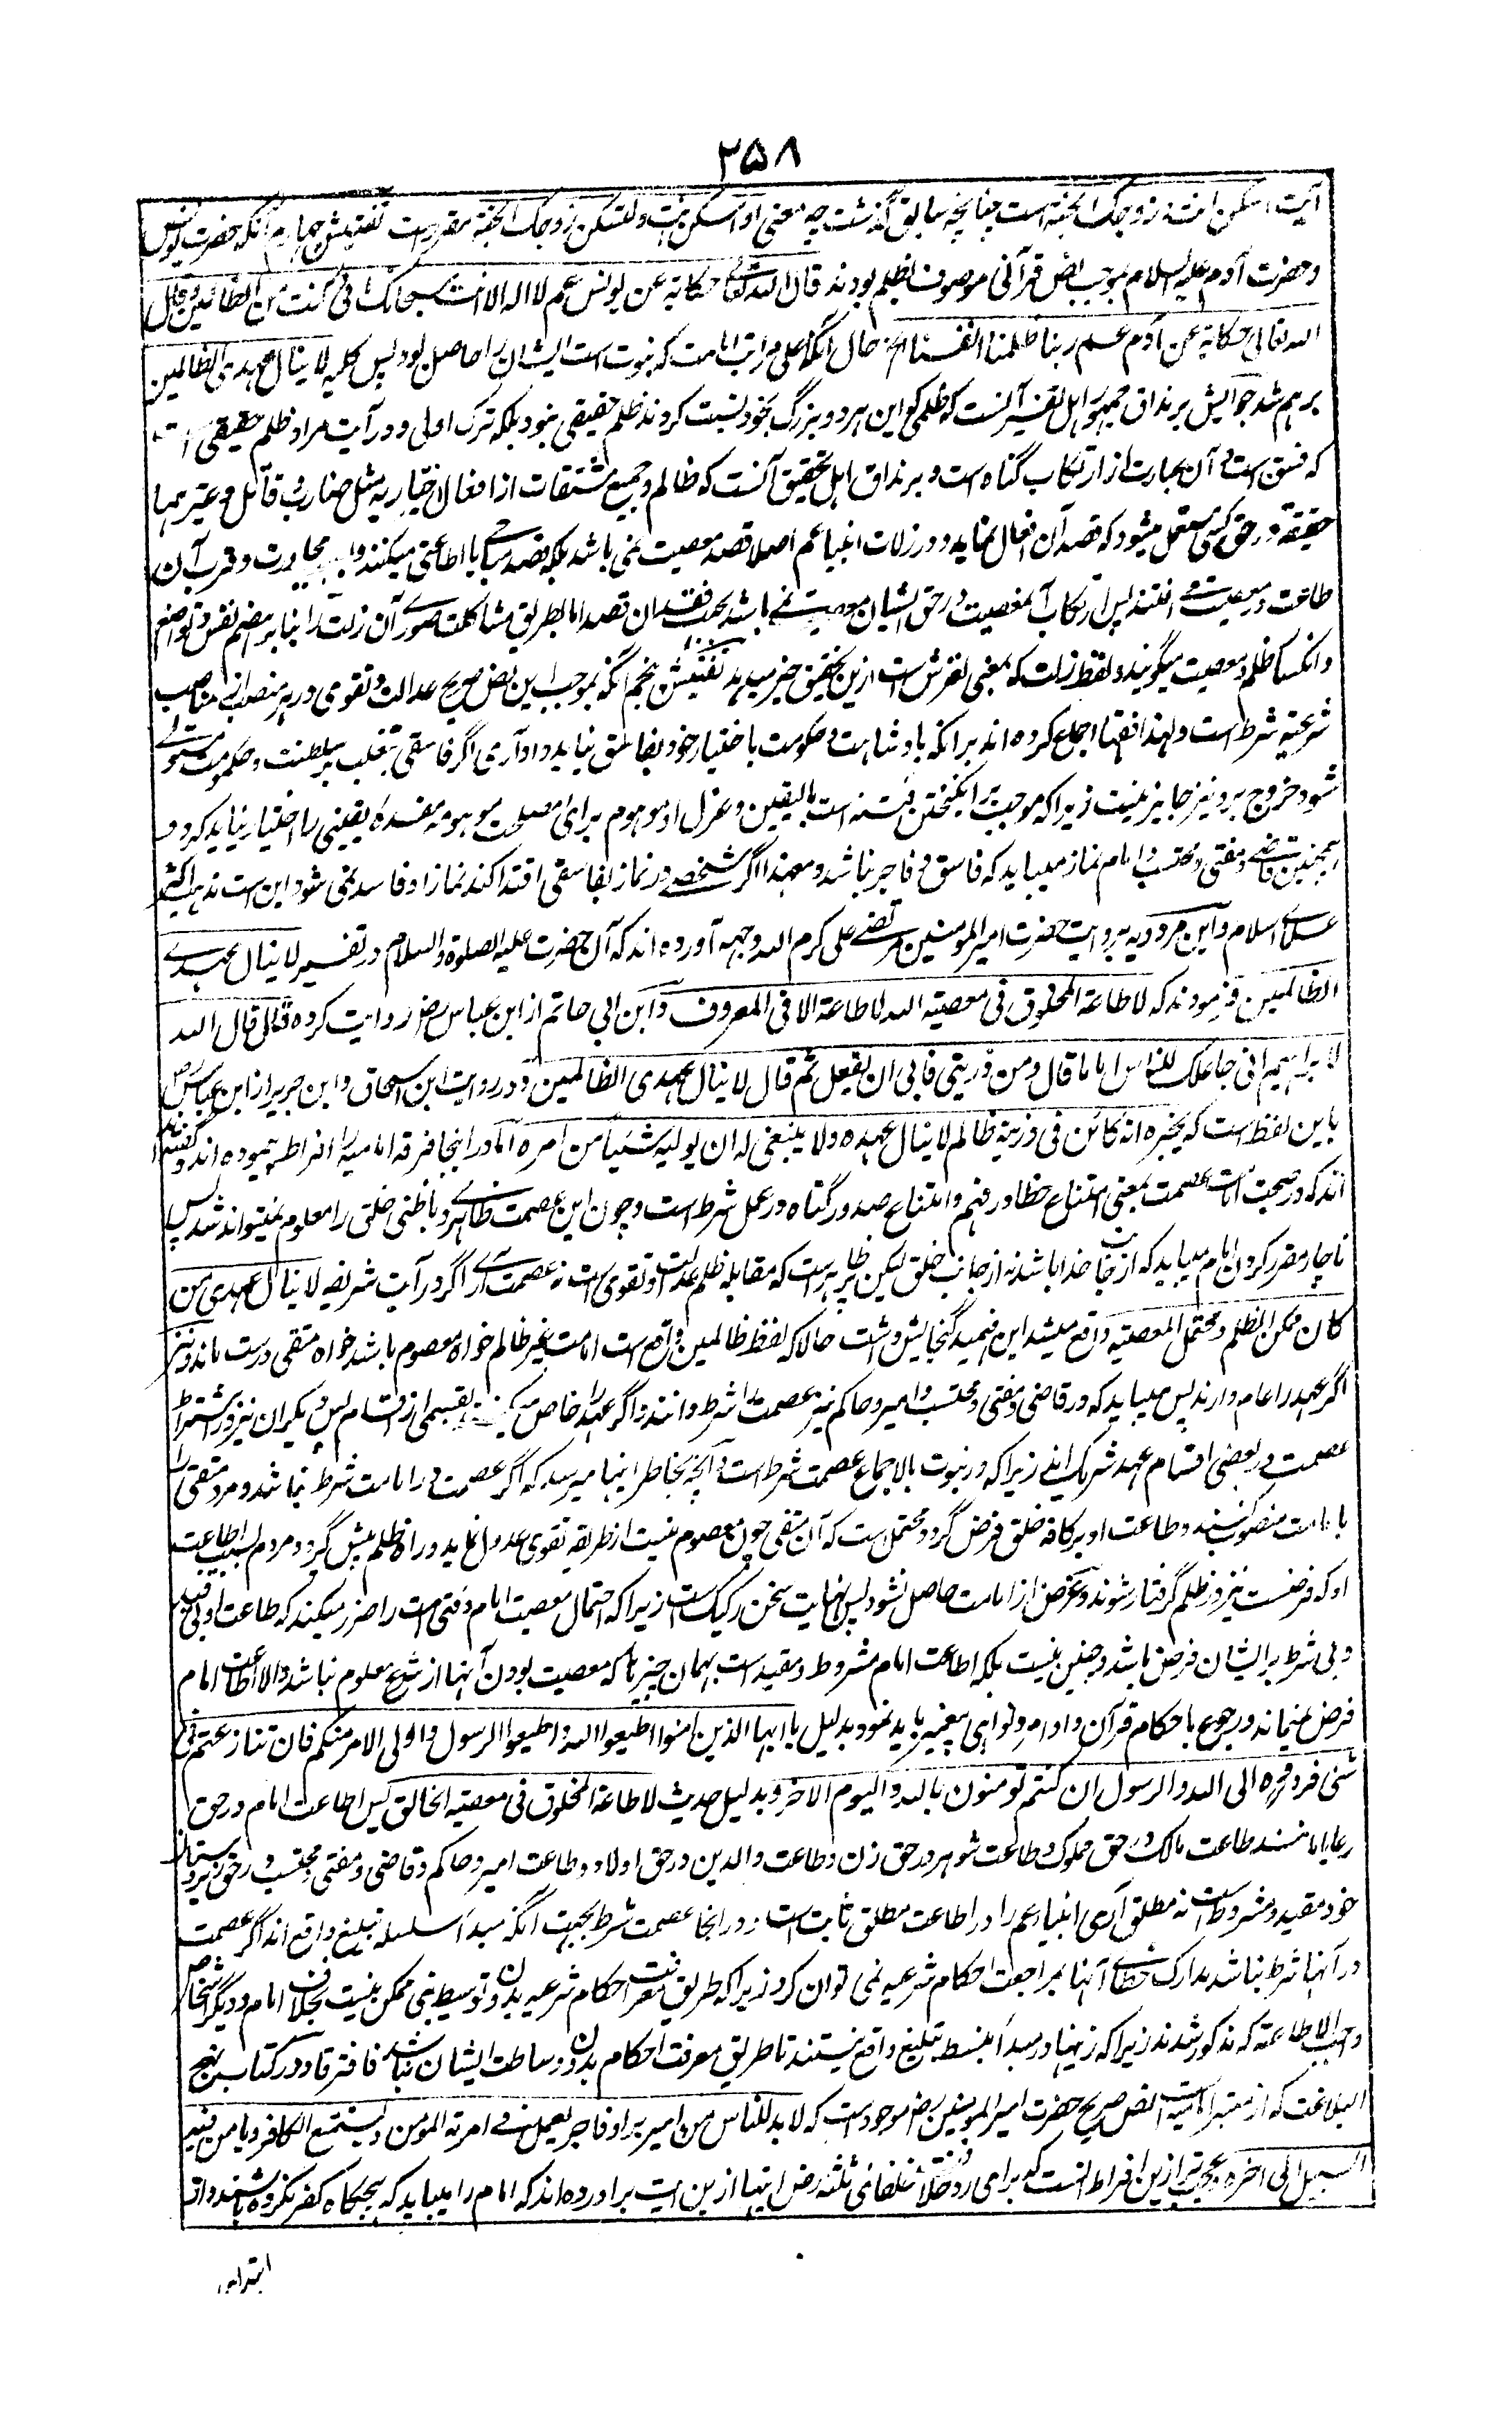 ۲۵۸
آیت اسکن انت و زوجک الجنة است چنانچه سابق گذشت چه معنی او اسکن انت و لتسکن زوجک الجنة مقرر است تفتیش چهارم آنکه حضرت یونس
و حضرت آدم علیه السلام بموجب نص قرآنی موصوف بظلم بودند قال الله تعالی حکایة عن یونس عم لا اله الا انت سبحانک انی کنت من الظالمین و قال
الله تعالی حکایة عن آدم عم ربنا ظلمنا انفسنا الخ حال آنکه اعلی مراتب امامت که نبوت است ایشان را حاصل بود پس کلیه لا ینال عهدی الظالمین
برهم شد جوابش بر مذاق جمهور اهل تفسیر آنست که ظلمی که این هر دو بزرگ بخود نسبت کردند ظلم حقیقی نبود بلکه ترک اولی و در آیت مراد ظلم حقیقی است
که فسق است و آن عبارت از ارتکاب گناه است و بر مذاق اهل تحقیق آنست که ظالم و جمیع مشتقات از افعال اختیاریه مثل ضارب و قاتل و غیرهما
حقیقة در حق کسی مستعمل میشود که قصد آن افعال نماید و در زلات انبیا عم اصلا قصد معصیت نمی باشد بلکه قصد مباحی یا طاعتی میکنند و بسبب مجاورت و قرب آن
طاعت در معصیت می افتند پس ارتکاب آن معصیت در حق ایشان معصیت نمی باشد بجهت فقدان قصد اما بطریق مشاکلت صوری آن زلت را بنا بر هضم نفس و تواضع
و انکسار ظلم و معصیت میگویند و لفظ زلت که بمعنی لغزش است ازین تحقیق خبر میدهد تفتیش پنجم آنکه بموجب این نص صریح عدالت و تقوی در هر منصب از مناصب
شرعیه شرط است و لهذا فقها اجماع کرده اند بر آنکه بادشاهت و حکومت باختیار خود بفاسق نباید داد آری اگر فاسقی بتغلب بر سلطنت و حکومت مستولی
شود خروج برو نیز جایز نیست زیرا که موجب برانگیختن فتنه است بالیقین و عزل او موهوم برای مصلحت موهومه مفسده یقینی را اختیار نباید کرد و
همچنین قاضی و مفتی و محتسب و امام نماز میباید که فاسق و فاجر نباشد و معهذا اگر شخصی در نماز بفاسقی اقتدا کند نماز او فاسد نمی شود این است مذهب اکثر
علمای اسلام و ابن مردویه بروایت حضرت امیر المومنین مرتضی علی کرم الله وجهه آورده اند که آن حضرت علیه الصلوة و السلام در تفسیر لا ینال عهدی
الظالمین فرمودند که لا طاعة لمخلوق فی معصیة الله لا طاعة الا فی المعروف و ابن ابی حاتم از ابن عباس رض روایت کرده قال قال الله
لابراهیم انی جاعلک للناس اماما قال و من ذریتی فابی ان یفعل ثم قال لا ینال عهدی الظالمین و در روایت ابن اسحاق و ابن جریر از ابن عباس رض
باین لفظ است که یخبره انه کائن فی ذریته ظالم لا ینال عهده و لا ینبغی له ان یولیه شیئا من امره اما در اینجا فرقه امامیه راه افراط پیموده اند و گفته
اند که در صحت امامت عصمت بمعنی امتناع خطا در فهم و امتناع صدور گناه در عمل شرط است و چون این عصمت ظاهری و باطنی خلق را معلوم نمیتواند شد پس
ناچار مقرر کردن امام میباید که از جانب خدا باشد نه از جانب خلق لیکن ظاهر است که مقابله ظلم عدالت و تقوی است نه عصمت آری اگر در آیت شریفه لا ینال عهدی من
کان ممکن الظلم و محتمل المعصیة واقع میشد این فهمید گنجایش داشت حالا که لفظ ظالمین واقع است امامت غیر ظالم خواه معصوم باشد خواه متقی درست ماند و نیز
اگر عهد را عام دارند پس میباید که در قاضی و مفتی و محتسب و امیر و حاکم نیز عصمت را شرط دانند و اگر عهد را خاص میکنند بقسمی از اقسام پس دیگران نیز در اشتراط
عصمت در بعضی اقسام عهد شریک اند زیرا که در نبوت بالاجماع عصمت شرط است و آنچه بخاطر اینها میرسد که اگر عصمت در امامت شرط نباشد و مرد متقی را
بامامت منصوب کنند و طاعت او بر کافه خلق فرض گردد محتمل است که آن متقی چون معصوم نیست از طریقه تقوی عدول نماید و راه ظلم پیش گیرد و مردم بسبب اطاعت
او که فرضست نیز در ظلم گرفتار شوند و غرض از امامت حاصل نشود پس نهایت سخن رکیک است زیرا که احتمال معصیت امام وقتی امت را ضرر میکند که طاعت او بی قید
و بی شرط بر ایشان فرض باشد و چنین نیست بلکه اطاعت امام مشروط و مقید است بهمان چیزها که معصیت بودن آنها از شرع معلوم نباشد و الا اطاعت امام
فرض نمیماند و رجوع باحکام قرآن و اوامر و نواهی پیغمبر باید نمود بدلیل یا ایها الذین امنوا اطیعوا الله و اطیعوا الرسول و اولی الامر منکم فان تنازعتم فی
شئ فردوه الی الله و الرسول ان کنتم تومنون بالله و الیوم الاخر و بدلیل حدیث لا طاعة لمخلوق فی معصیة الخالق پس اطاعت امام در حق
رعایا مانند طاعت مالک در حق مملوک و طاعت شوهر در حق زن و طاعت والدین در حق اولاد و طاعت امیر و حاکم و قاضی و مفتی و محتسب در حق زیردستان
خود مقید و مشروط است نه مطلق آری انبیا عم را در اطاعت مطلق ثابت است و در انجا عصمت شرط بجهت آنکه مبدأ سلسله تبلیغ واقع اند اگر عصمت
در آنها شرط نباشد تدارک خطای آنها بمراجعت احکام شرعیه نمی توان کرد زیرا که طریق معرفت احکام شرعیه بدون توسیط نبی ممکن نیست بخلاف امام و دیگر اشخاص
واجب الاطاعة که مذکور شدند زیرا که اینها در مبدأ تبلیغ واقع نیستند تا طریق معرفت احکام بدون وساطت ایشان نباشد فافترقا و در کتاب نهج
البلاغت که از معتبرات امامیه است نص صریح حضرت امیر المومنین رض موجود است که لا بد للناس من امیر بر او فاجر یعمل فی امرته المومن و یستمتع الکافر و یامن فیه
السبیل الی اخره عجب تر ازین افراط انست که برای رد خلافت خلفای ثلثه رض اینها ازین ایت براورده اند که امام را میباید که هیچگاه کفر نکرده باشد و از
ابتدای